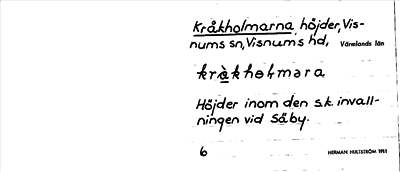 Kråkholmarna, höjder, Vis-
nums sn, Visnums hd, Värmlands län
kràkhəɫməra
Höjder inom den s.k. invall-
ningen vid Såby.
6 HERMAN HULTSTRÖM 1951